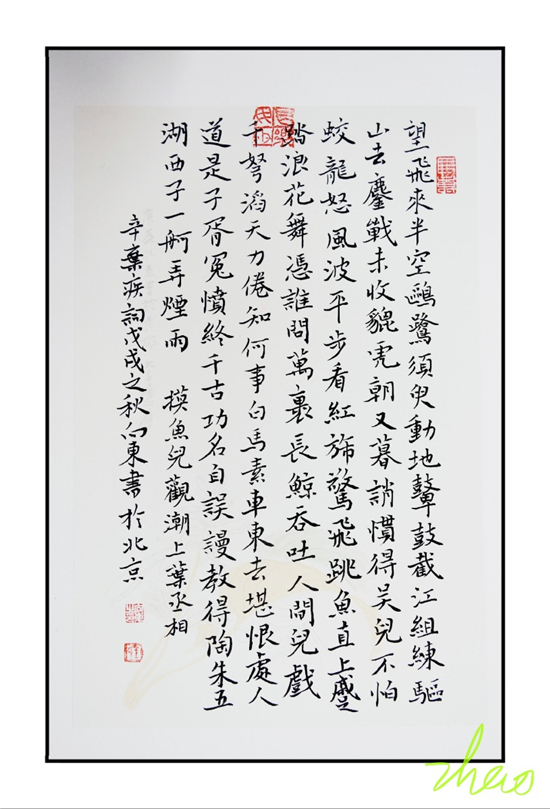 望飛來半空鷗鷺須臾動地鼙鼓截江組練驅
山去鏖戰未收貔虎朝又暮誚慣得吳兒不怕
蛟龍怒風波平步看紅旆驚飛跳魚直上蹙
踏浪花舞憑誰問萬裏長鯨吞吐人間兒戲
千弩滔天力倦知何事白馬素車東去堪恨處人
道是子胥冤憤終千古功名自誤謾教得陶朱五
湖西子一舸弄煙雨 摸魚兒觀潮上葉丞相
辛棄疾詞戊戌之秋向東書於北京
zhao